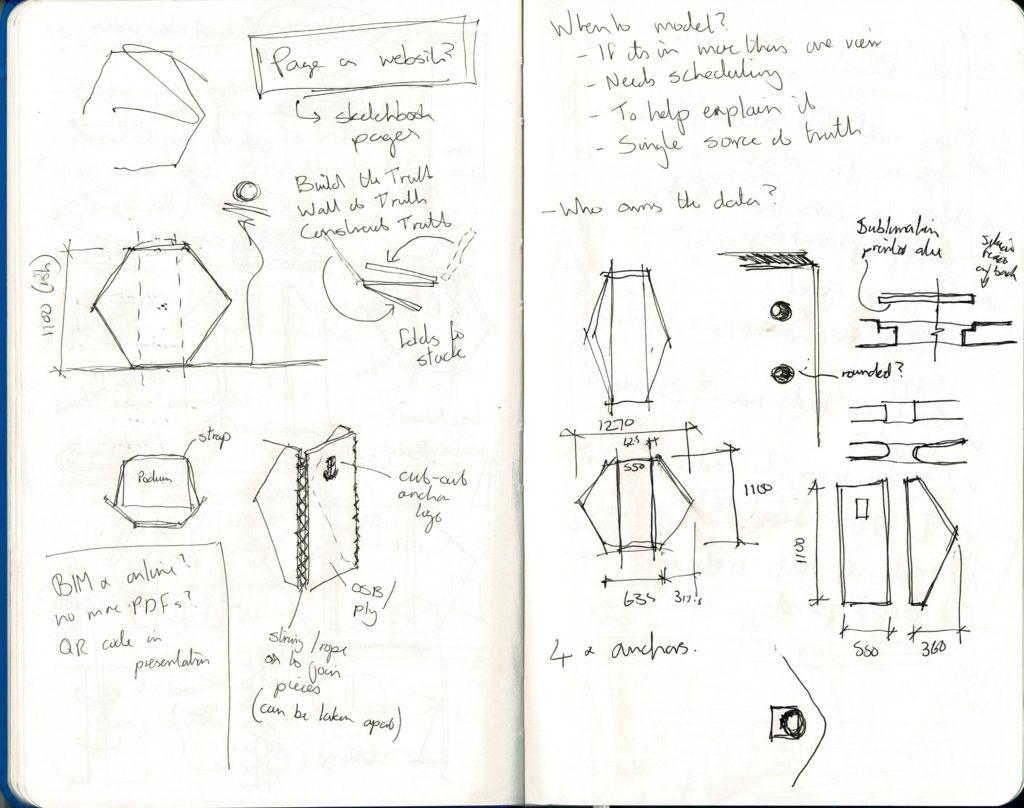 Page on website?
↳ sketchbook
pages
Build the Truth
Wall of Truth
Construct Truth
folds to
stack
1100 (ish)
strap
Podium
cut-out
anchor
logo
OSB/
ply
string/rope
to join
pieces
(can be taken apart)
BIM & online?
no more PDFs?
QR code in
presentation
When to model?
- If its in more than one view
- Needs scheduling
- To help explain it
- Single source of truth
- Who owns the data?
Sublimation
printed alu
on back
rounded?
1270
425
550
1100
635
317.5
1100
550
360
4 x anchors.